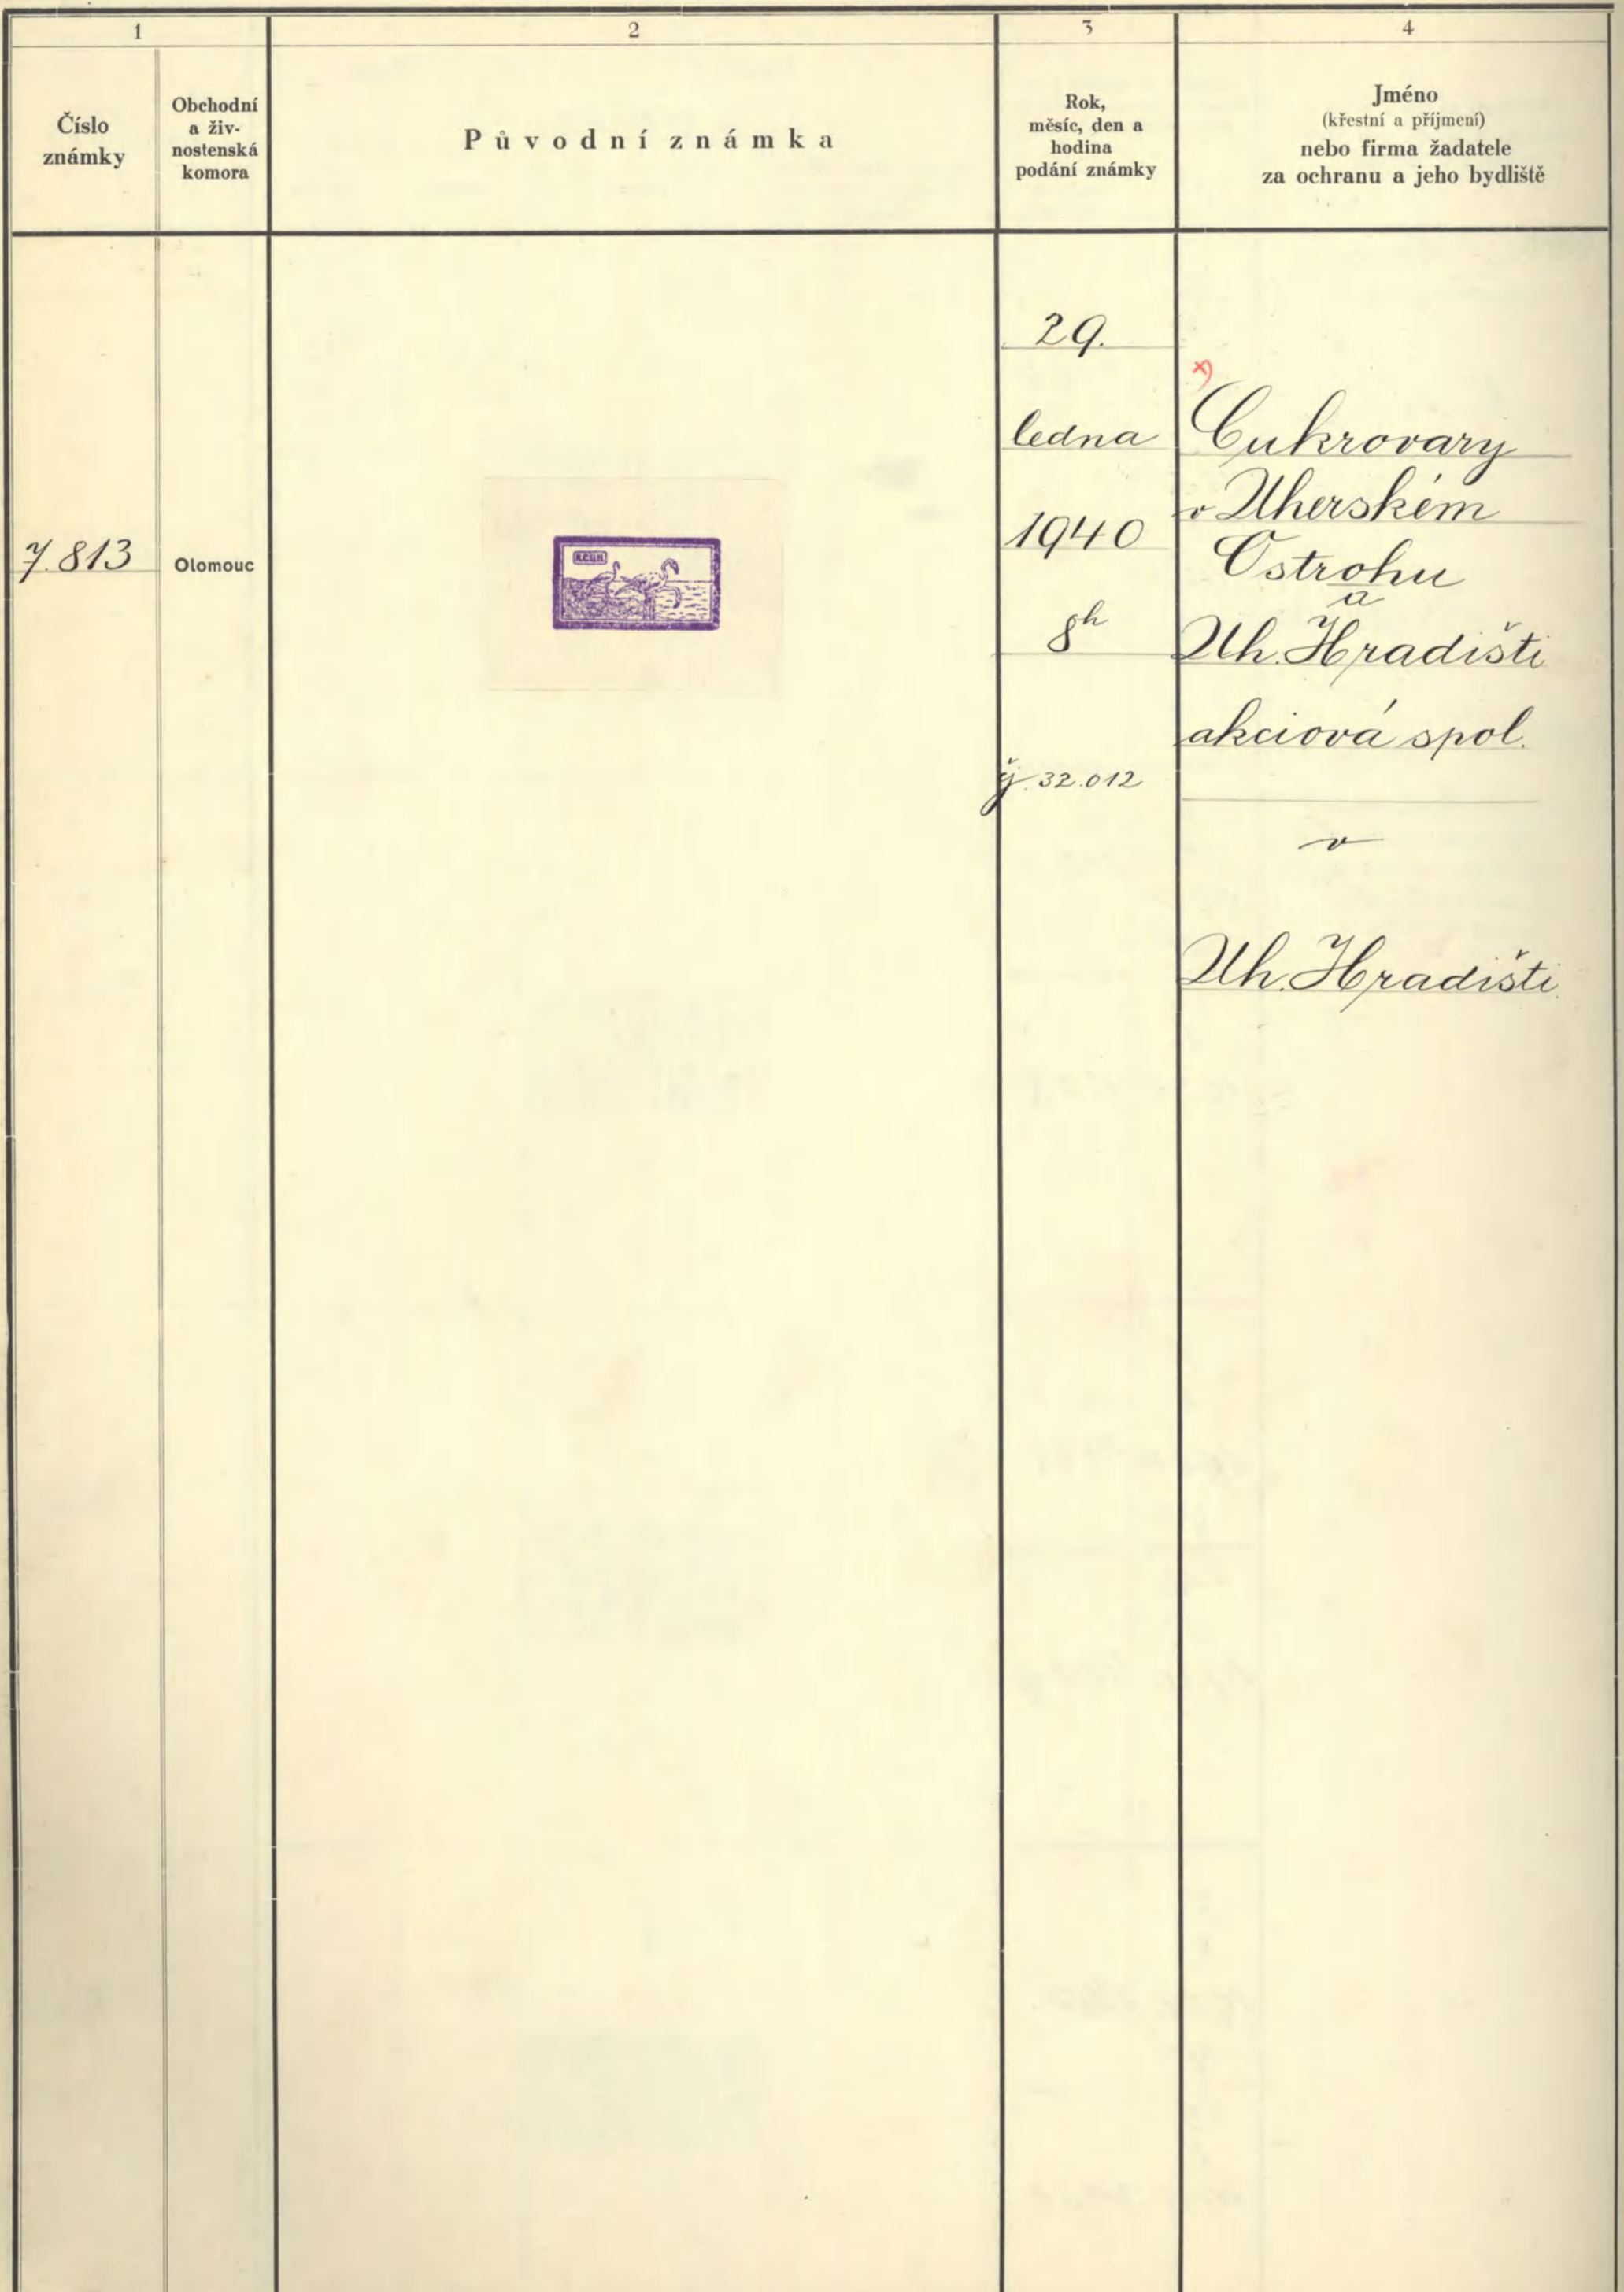 1
2
3
4
Číslo
známky
Obchodní
a živ-
nostenská
komora
Původní známka
Rok,
měsíc, den a
hodina
podání známky
Jméno
(křestní a příjmení)
nebo firma žadatele
za ochranu a jeho bydliště
7.813
Olomouc
29.
ledna
1940
8h
čj. 32.012
x)
Cukrovary
v Uherském
Ostrohu
a
Uh. Hradišti
akciová spol.
v
Uh. Hradišti